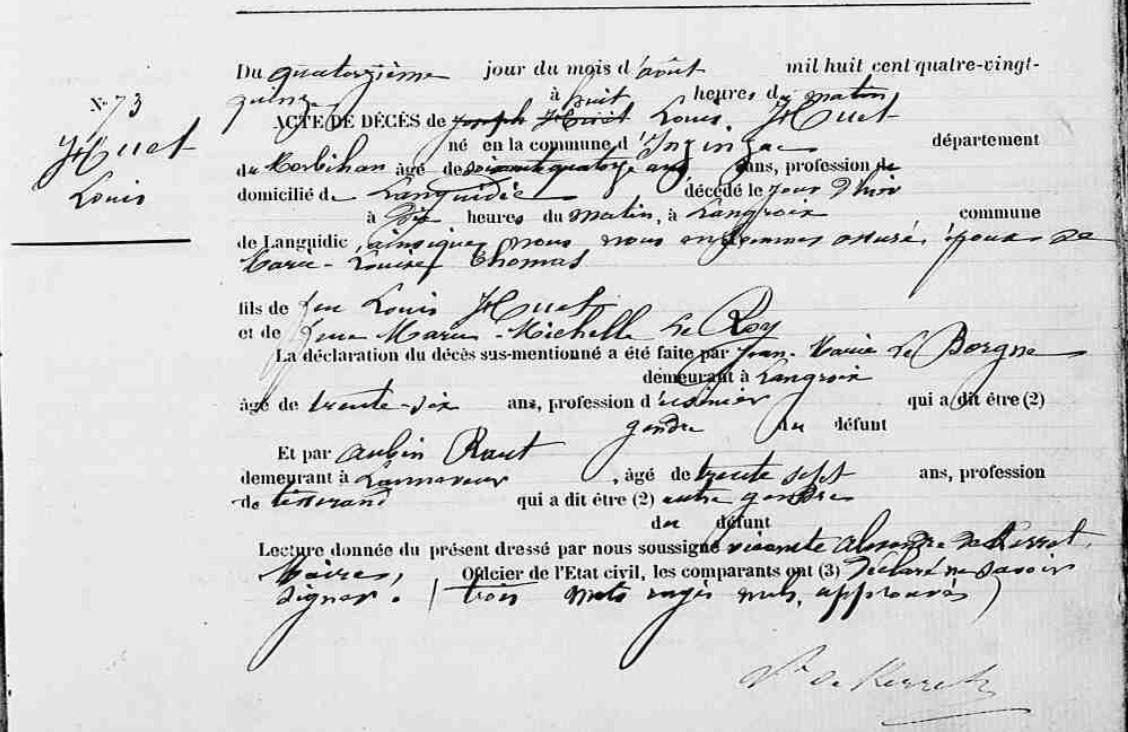 Du quatorzième jour du mois d'août mil huit cent quatre-vingt-
N° 73
quinze à huit heures du matin
ACTE DE DÉCÈS de Joseph Huet Louis Huet
Huet
né en la commune d'Inzinzac département
Louis
du Morbihan âgé de soixante quatorze ans ans, profession de
domicilié de Languidic décédé le jour d'hier
à dix heures du matin, à Langroix commune
de Languidic, ainsi que nous nous en sommes assuré, époux de
Marie-Louise Thomas
fils de feu Louis Huet
et de feue Marie-Michelle Le Roy
La déclaration du décès sus-mentionné a été faite par Jean-Marie Le Borgne
demeurant à Langroix
âgé de trente-six ans, profession d'usinier qui a dit être (2)
gendre du défunt
Et par Aubin Raut
demeurant à , âgé de trente sept ans, profession
de tisserand qui a dit être (2) autre gendre
du défunt
Lecture donnée du présent dressé par nous soussigné vicomte de Kerret,
Maire, Officier de l'Etat civil, les comparants ont (3) déclaré ne savoir
signer. (trois mots rayés nuls, approuvés)
Vte de Kerret